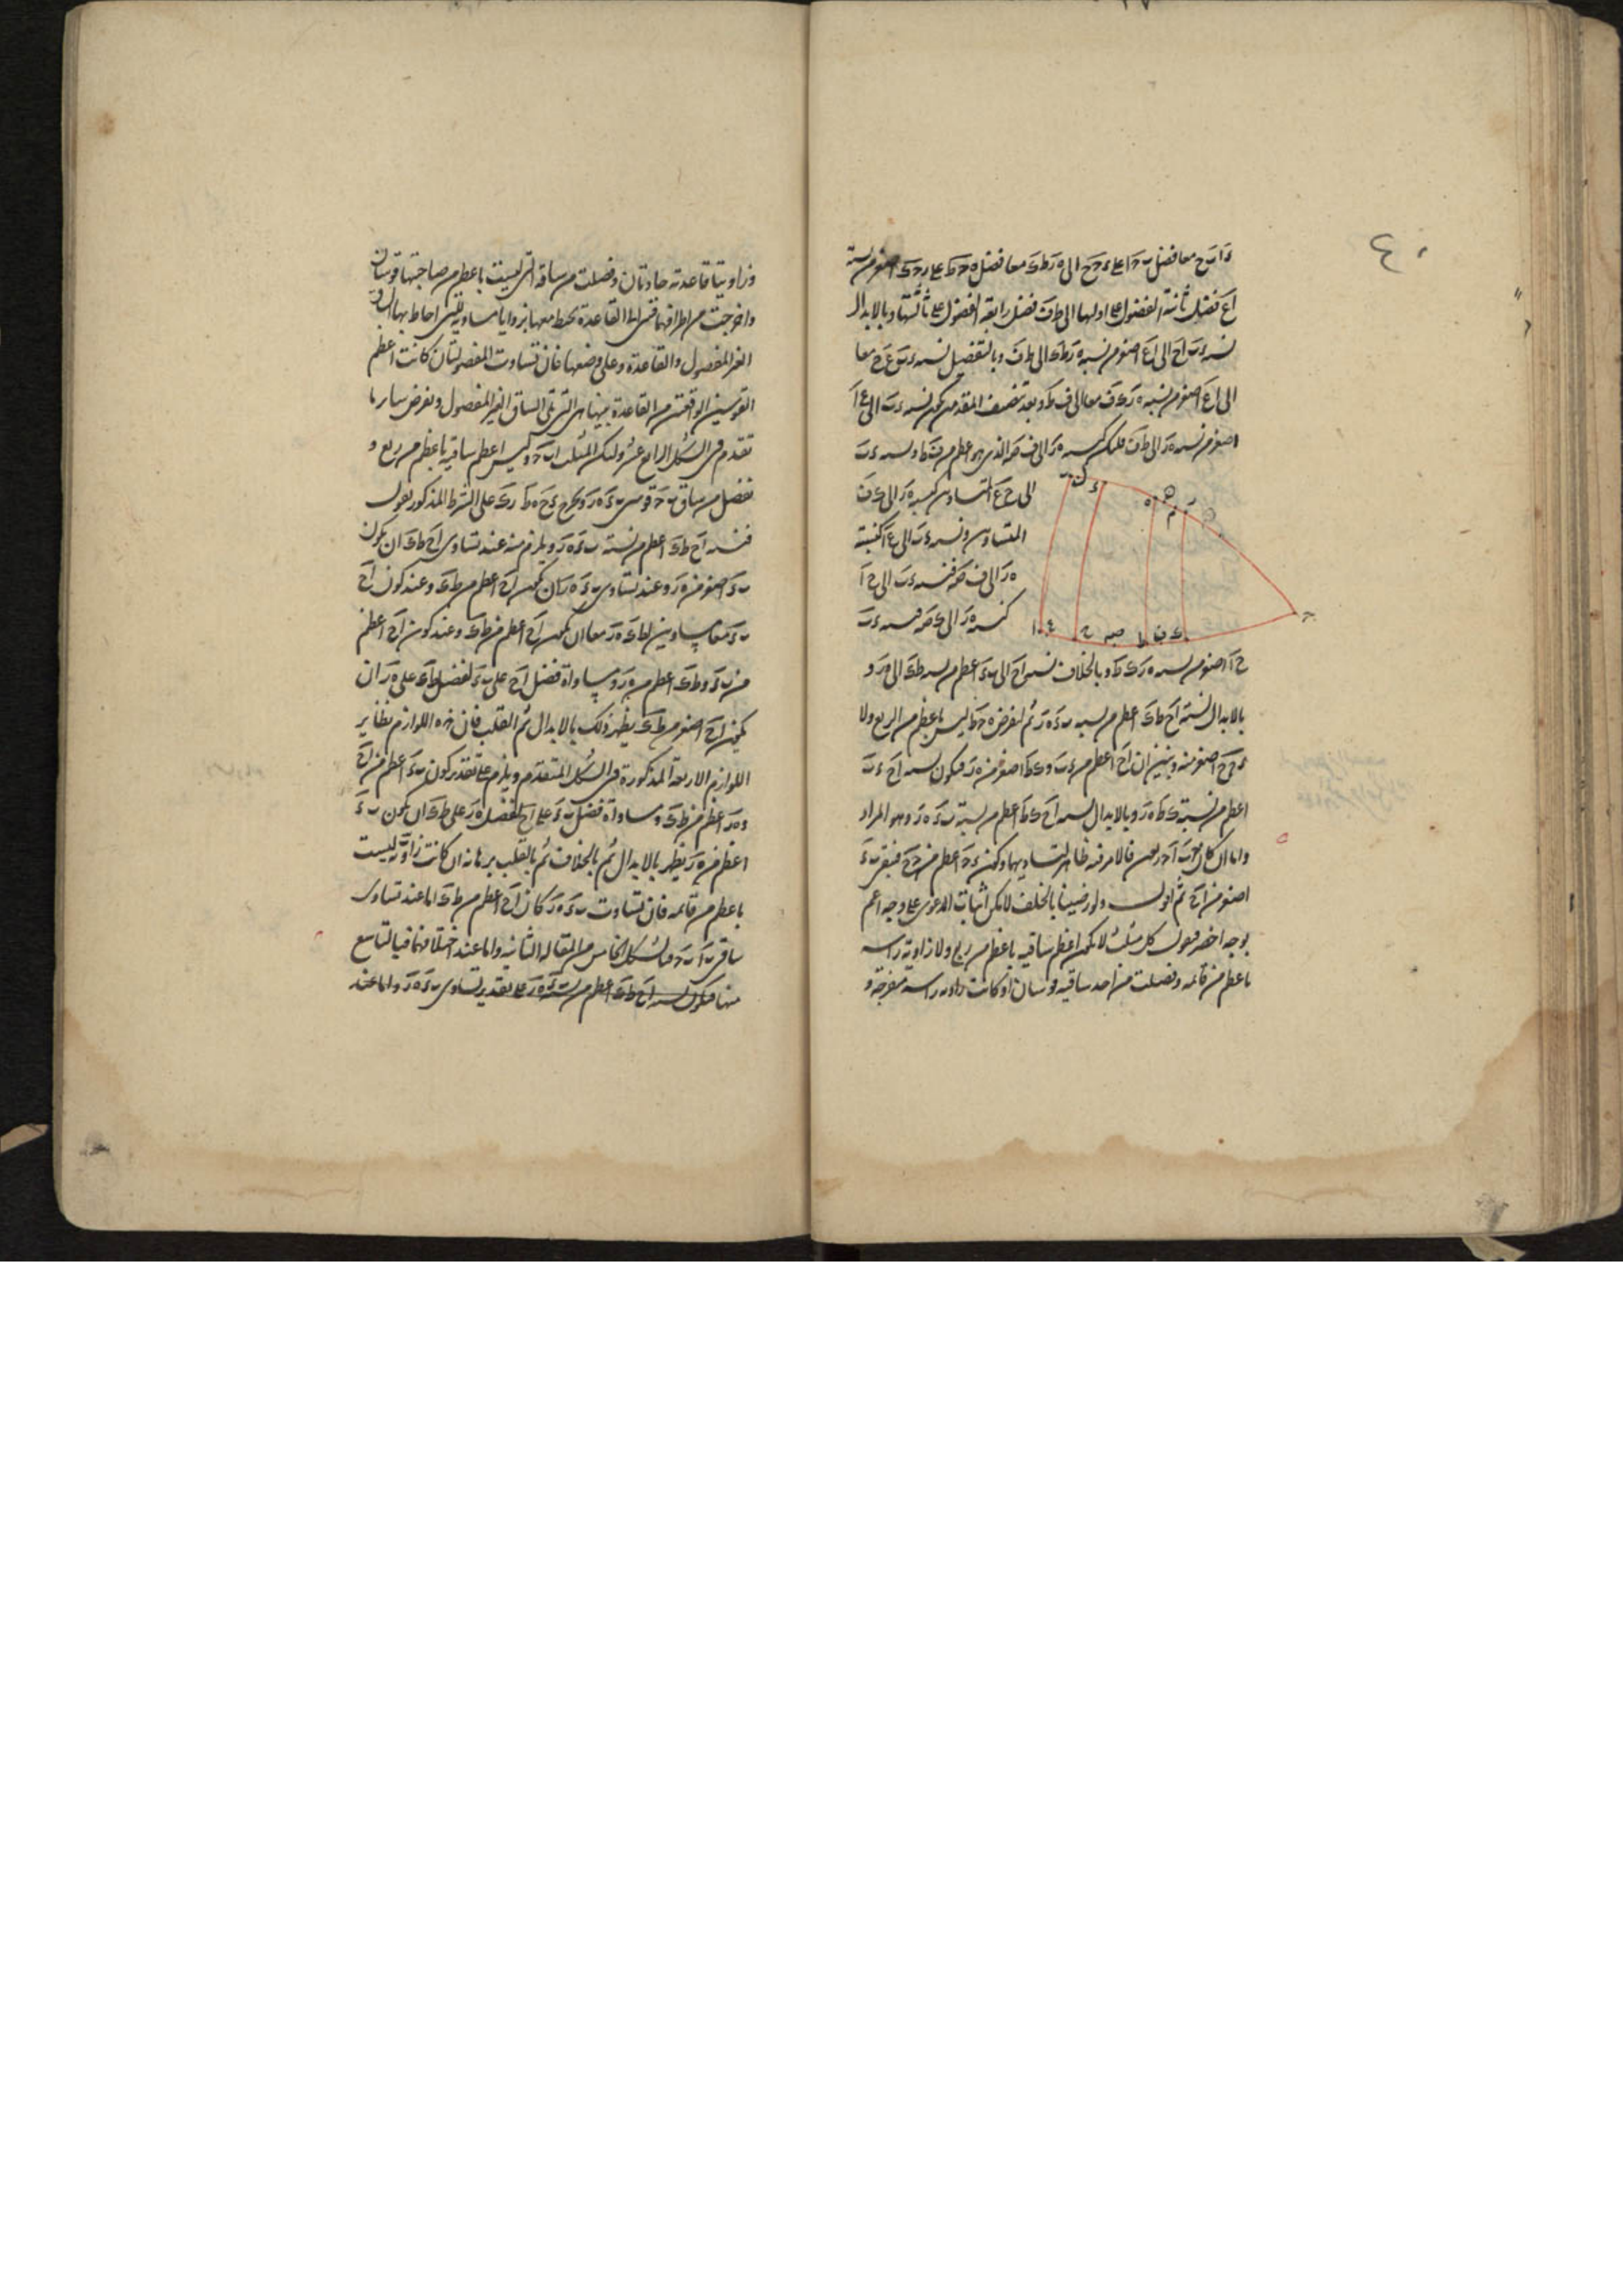 ٤٠
ءَ اب ح معا فضل ب ح ا على ء ح ح الى ه ر ط ك معا فضل ه ح ط على ر ح ك اصغر من نسبة
اع فضل ثانية الفضول على اولها الى ط ف فضل رابعة الفضول على ثالثتها وبالابدال
نسبة ء ب اح الى اع اصغر من نسبة ه ر ط ك الى ط ف وبالتفصيل نسبة ء ب ع ح معا
الى اع اصغر من نسبة ه ر ك ف معا الى ف ط وبعد تنصيف المقدمين يكون نسبة ء ب الى ع ا
اصغر من نسبة ه ر الى ط ف فليكن كنسبة ه ر الى ف صه الذى هو اعظم من ف ط ونسبة ء ب
الى ح ع المتساويين كنسبة ه ر الى ك ف
المتساويين ونسبة ء ب الى ع ا كنسبة
ه ر الى ف صه فنسبة ء ب الى ح ا
كنسبة ه ر الى ك صه فنسبة ء ب
ح ا اصغر من نسبة ه ر ك ط وبالخلاف نسبة اح الى ب ء اعظم من نسبة ط ك الى ه ر و
بالابدال نسبة اح ط ك اعظم من نسبة ب ء ه ر ثم لنفرض ه ح ط ليس باعظم من الربع ولا
ء ح ح اصغر منه وتبين ان اح اعظم من ء ب و ك ط اصغر من ه ر فيكون نسبة اح ء ب
اعظم من نسبة ك ط ه ر وبالابدال نسبة اح ك ط اعظم من نسبة ب ء ه ر وهو المراد
واما ان كان ح ب ا ح ربعين فالامر فيه ظاهر لتساويهما وكون ء ح اعظم من ح ح فيبقى ب ء
اصغر من اح ثم اقول ولو رضينا بالخلف لامكن اثبات الدعوى على وجه اعم
بوجه اخصر فنقول كل مثلث لا يكون اعظم ساقيه باعظم من ربع ولا زاوية راسه
باعظم من قائمه وفصلت من احد ساقيه قوسان او كانت زاوية راسه منفرجة و
وزاويتا قاعدته حادتان وفصلت من ساقه التى ليست باعظم من صاحبتها قوسان
واخرجت من اطرافهما قسى الى القاعدة تحيط معها بزوايا مساوية للتى احاط بها الساق
الغير المفصول والقاعدة وعلى وضعها فان تساوت المفصولتان كانت اعظم
القوسين الواقعتين من القاعدة بينهما هى التى تلى الساق الغير المفصول ونفرض ساير ما
تقدم فى الشكل الرابع عشر وليكن المثلث اب ح وليس اعظم ساقيه باعظم من ربع و
نفصل من ساق ب ح قوسى ب ء ه ر ونخرج ء ح ه ط ر ك على الشرط المذكور نقول
فنسبة اح ط ك اعظم من نسبة ب ء ه ر ويلزم منه عند تساوى اح ط ك ان يكون
ب ء اصغر من ه ر وعند تساوى ب ء ه ر ان يكون اح اعظم من ط ك وعند كون اح
ب ء معا مساويين ل ط ك ه ر معا ان يكون اح اعظم من ط ك وعند كون اح اعظم
من ب ء و ط ك اعظم من ه ر ومساواة فضل اح على ب ء لفضل ط ك على ه ر ان
يكون اح اصغر من ط ك يظهر ذلك بالابدال ثم القلب فان هذه اللوازم نظاير
اللوازم الاربعة المذكورة فى الشكل المتقدم ويلزم على تقدير كون ب ء اعظم من اح
و ه ر اعظم من ط ك ومساواة فضل ب ء على اح لفضل ه ر على ط ك ان يكون ب ء
اعظم من ه ر يظهر بالابدال ثم بالخلاف ثم بالقلب برهانه ان كانت زاوية ب ليست
باعظم من قائمه فان تساوت ب ء ه ر كان اح اعظم من ط ك اما عند تساوى
ساقى ب ا ب ح فبالشكل الخامس من المقالة الثانية واما عند اختلافهما فبالتاسع
منها فيكون نسبة اح ط ك اعظم من نسبة ب ء ه ر على تقدير تساوى ب ء ه ر واما عند